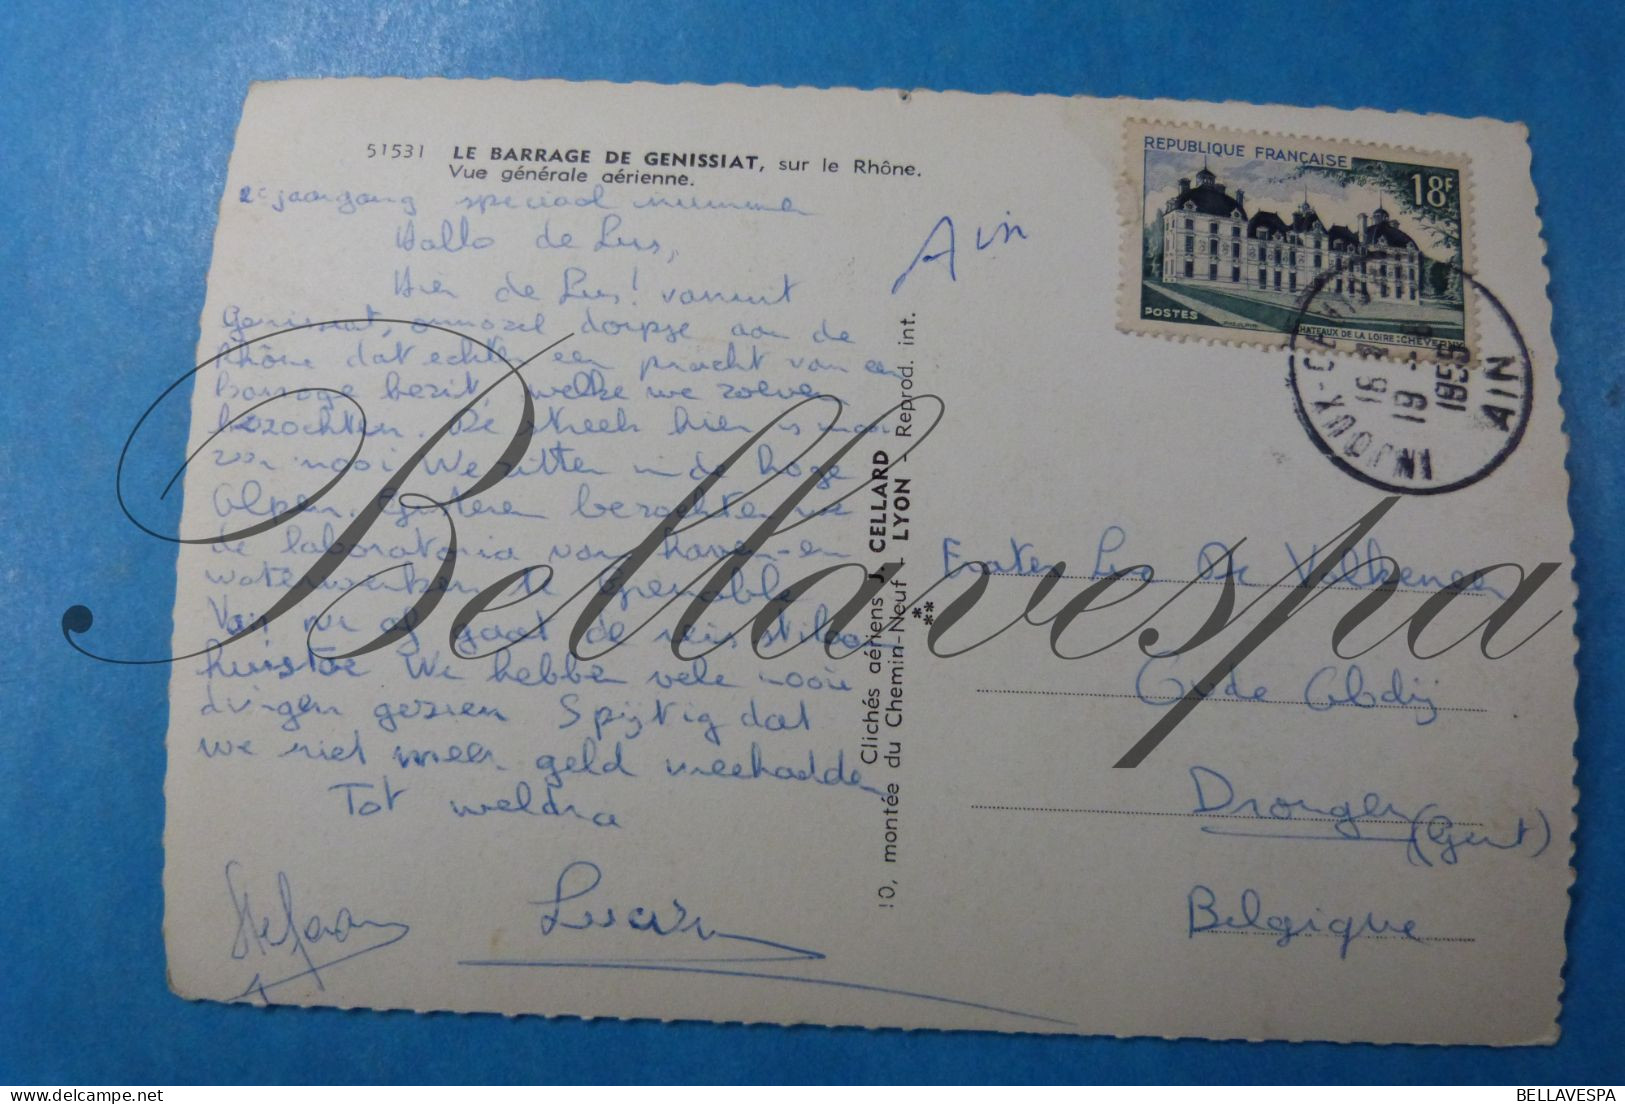 51531 LE BARRAGE DE GENISSIAT, sur le Rhône.
Vue générale aérienne.
2e jaargang speciaal nummer
Hallo de Lus,
Hier de Lus! vanuit
Genissiat, onnozel dorpje aan de
Rhône dat echter een pracht van een
barrage bezit, welke we zoeven
bezochten. De streek hier is maar
zo mooi We zitten in de hoge
Alpen. Gisteren bezochten we
de laboratoria van haven- en
waterwerken te Grenoble
Van nu af gaat de reis stilaan
huistoe We hebben vele mooie
dingen gezien Spijtig dat
we niet meer geld meehadden
Tot weldra
Stefaan
Lucien
Ain
Clichés aériens J. CELLARD
10, montée du Chemin-Neuf - LYON - Reprod. int.
REPUBLIQUE FRANÇAISE
18F
POSTES
CHATEAUX DE LA LOIRE: CHEVERNY
INJOUX
AIN
16
19
1955
Frater Luc De Valkeneer
Oude Abdij
Drongen (Gent)
Belgique
Bellavespa
BELLAVESPA